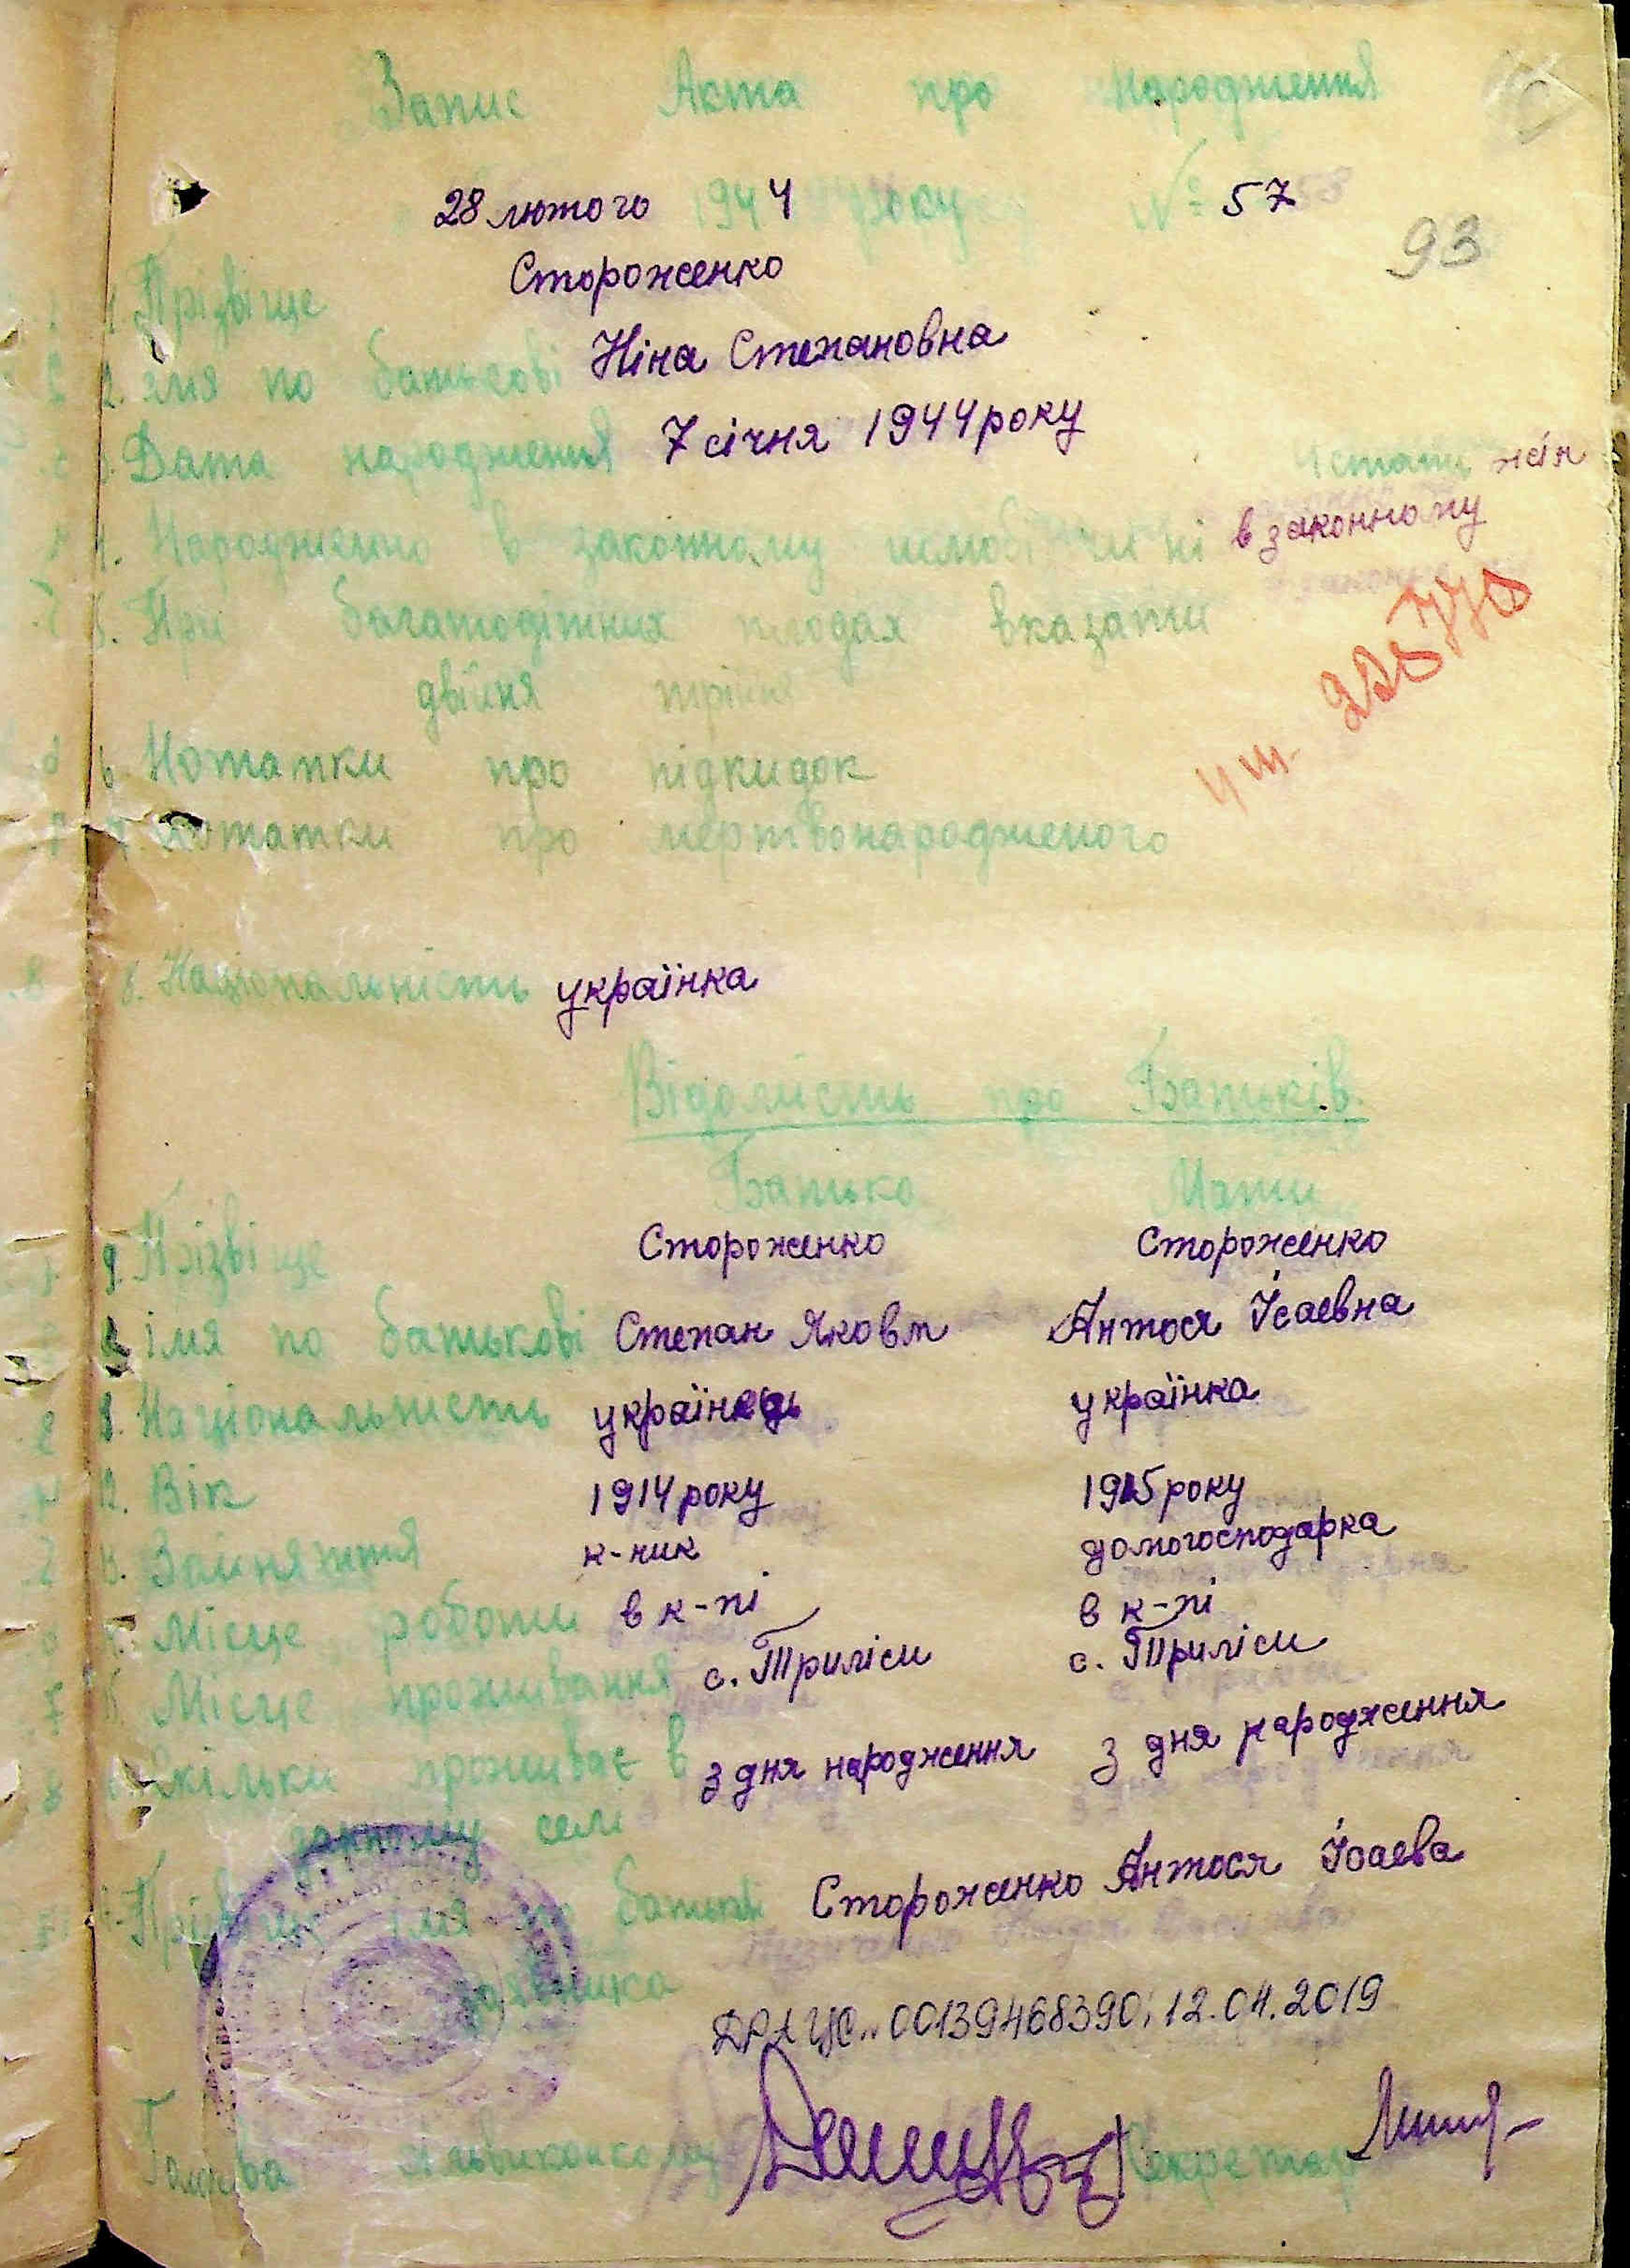 Запис Акта про народження
28 лютого 1944 року № 57
93
1. Прізвіще Стороженко
2. імя по батькові Ніна Степановна
3. Дата народження 7 січня 1944 року 4 стать жін
4. Народженно в законному шлюбі чи ні в законному
5. При багатодітних плодах вказати
двійня трійня
6. Нотатки про підкидок
7. Нотатки про мертвонародженого
8. Національність українка
Відомість про Батьків.
Батько Мати
9. Прізвіще Стороженко Стороженко
імя по батькові Степан Яковл Антося Ісаевна
Національність українець українка
12. Вік 1914 року 1915 року
Займаняття к-ник домогосподарка
Місце роботи в к-пі в к-пі
Місце проживання с. Триліси с. Триліси
Скільки проживає в з дня народження з дня народження
данному селі
Прізвище імя по батькові Стороженко Антося Ісаева
заявника
ДРАЦС.. 00139468390; 12.04.2019
Голова сільвиконкому Секретар